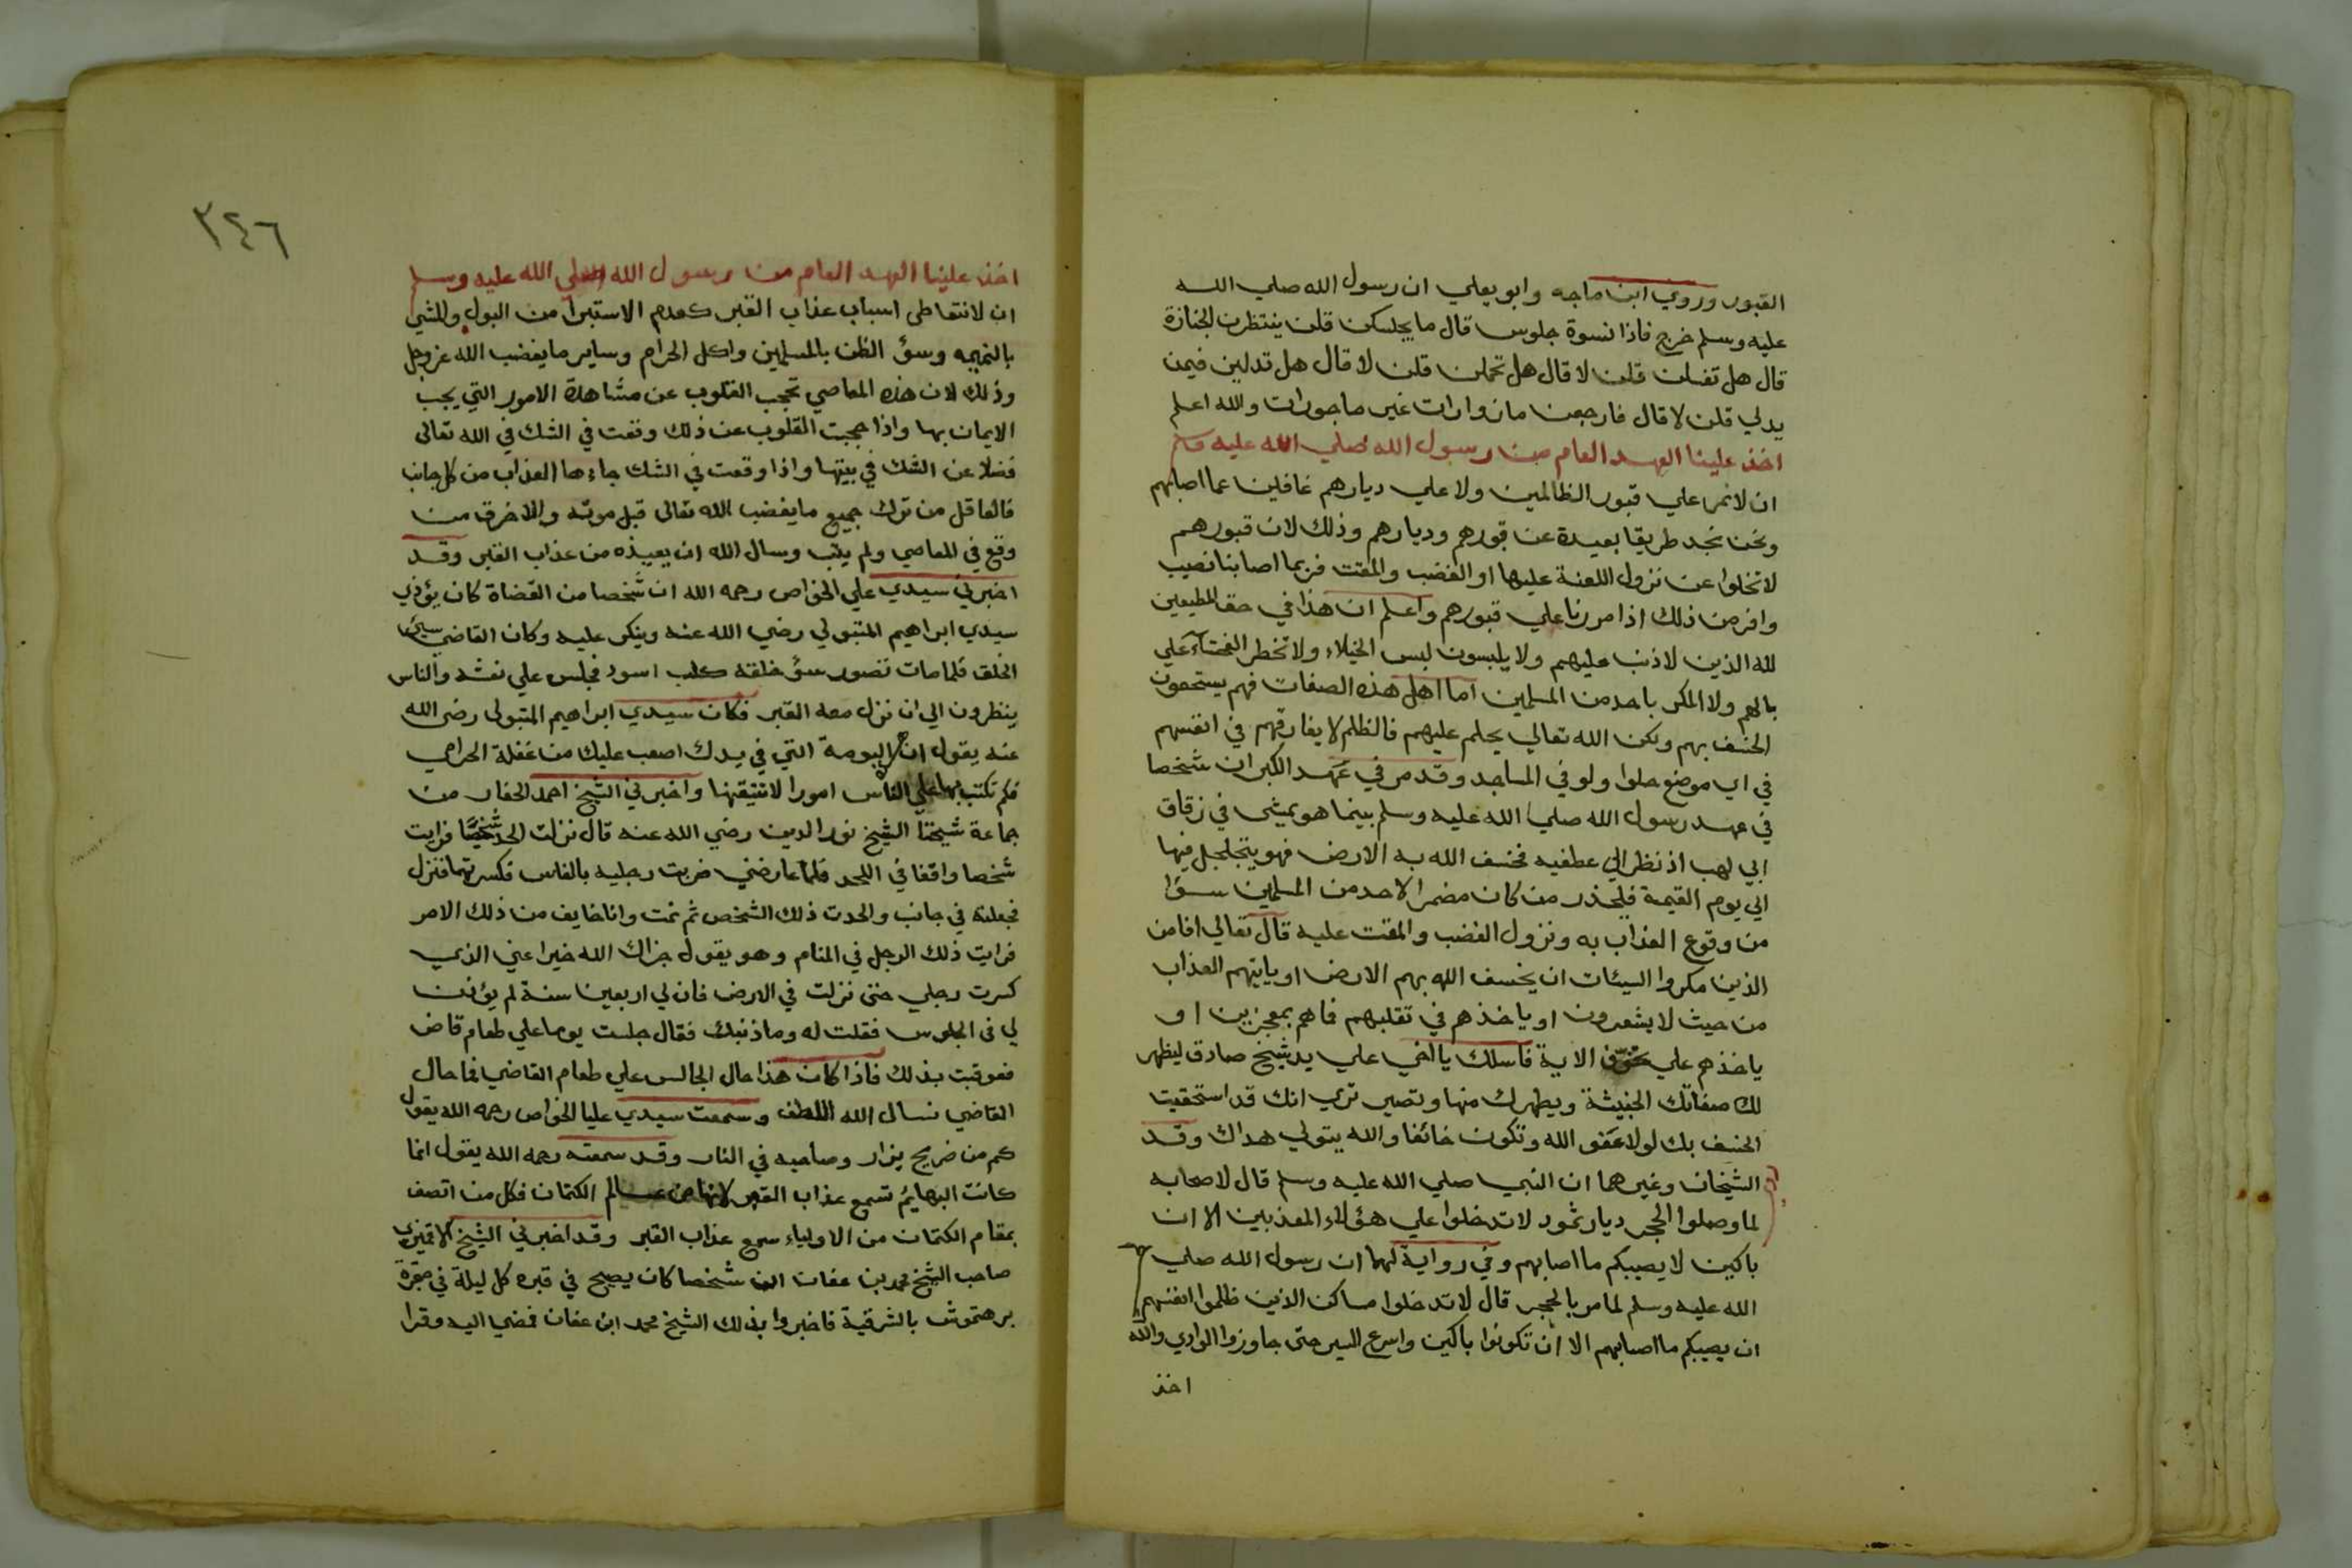 القبور وروي ابن ماجه وابو يعلي ان رسول الله صلي الله
عليه وسلم خرج فاذا نسوة جلوس قال ما يجلسكن قلن ينتظرن الجنازة
قال هل تغسلن قلن لا قال هل تحملن قلن لا قال هل تدلين فيمن
يدلي قلن لا قال فارجعن مازوارات غير ماجورات والله اعلم
اخذ علينا العهد العام من رسول الله صلي الله عليه وسلم
ان لا نمر علي قبور الظالمين ولا علي ديارهم غافلين عما اصابهم
ونحن نجد طريقا بعيدة عن قبورهم وديارهم وذلك لان قبورهم
لا تخلوا عن نزول اللعنة عليها او الغضب والمقت فربما اصابنا نصيب
وافر من ذلك اذا مررنا علي قبورهم واعلم ان هذا في حق المطيعين
لله الذين لا ذنب عليهم ولا يلبسون لبس الخيلاء ولا تخطر الفحشآء علي
بالهم ولا المكر باحد من المسلمين اما اهل هذه الصفات فهم يستحقون
الخسف بهم ولكن الله تعالي يحلم عليهم فالظلم لا يفارقهم في انفسهم
في اي موضع حلوا ولو في المساجد وقد مر في عهد الكبر ان شخصا
في عهد رسول الله صلي الله عليه وسلم بينما هو يمشي في زقاق
ابي لهب اذ نظر الي عطفيه فخسف الله به الارض فهو يتجلجل فيها
الي يوم القيمة فليحذر من كان مضمرا لاحد من المسلمين سوٓا
من وقوع العذاب به ونزول الغضب والمقت عليه قال تعالي افامن
الذين مكروا السيئات ان يخسف الله بهم الارض او ياتيهم العذاب
من حيث لا يشعرون او ياخذهم في تقلبهم فما هم بمعجزين او
ياخذهم علي تخوف الاية فاسلك يا اخي علي يد شيخ صادق ليظهر
لك صفاتك الخبيثة ويطهرك منها وتصير تري انك قد استحقيت
الخسف بك لولا عفو الله وتكون خائفا والله يتولي هداك وقد
الشيخان وغيرهما ان النبي صلي الله عليه وسلم قال لاصحابه
لما وصلوا الحجر ديار ثمود لا تدخلوا علي هؤلاء المعذبين الا ان
باكين لا يصيبكم ما اصابهم وفي رواية لهما ان رسول الله صلي
الله عليه وسلم لما مر بالحجر قال لا تدخلوا مساكن الذين ظلموا انفسهم
ان يصيبكم ما اصابهم الا ان تكونوا باكين واسرع السير حتي جاوزوا الوادي والله
اخذ
٣٤٦
اخذ علينا العهد العام من رسول الله صلي الله عليه وسلم
ان لا نتعاطي اسباب عذاب القبر كعدم الاستبرا من البول والمشي
بالنميمه وسؤ الظن بالمسلمين واكل الحرام وساير ما يغضب الله عز وجل
وذلك لان هذه المعاصي تحجب القلوب عن مشاهدة الامور التي يجب
الايمان بها واذا حجبت القلوب عن ذلك وقعت في الشك في الله تعالي
فضلا عن الشك في بيتها واذا وقعت في الشك جاءها العذاب من كل جانب
فالعاقل من ترك جميع ما يغضب الله تعالي قبل موته والاخرق من
وقع في المعاصي ولم يتب وسال الله ان يعيذه من عذاب القبر وقد
اخبرني سيدي علي الخواص رحمه الله ان شخصا من القضاة كان يؤذي
سيدي ابراهيم المتبولي رضي الله عنه وينكر عليه وكان القاضي سيئ
الخلق فلما مات تصور سؤ خلقه كلب اسود فجلس علي نعشه والناس
ينظرون الي ان نزل معه القبر فكان سيدي ابراهيم المتبولي رضي الله
عنه يقول ان البومة التي في يدك اصعب عليك من غفلة الحرامي
فكم تكتب بها علي الناس امورا لا تتيقنها واخبرني الشيخ احمد الحفار من
جماعة شيخنا الشيخ نور الدين رضي الله عنه قال نزلت الحد شخصا فرايت
شخصا واقفا في اللحد فلما عارضني ضربت رجليه بالفاس فكسرتهما فنزل
فجعلته في جانب والحدت ذلك الشخص ثم نمت وانا خايف من ذلك الامر
فرايت ذلك الرجل في المنام وهو يقول جزاك الله خيرا عني الذي
كسرت رجلي حتي نزلت في الارض فان لي اربعين سنة لم يؤذن
لي في الجلوس فقلت له وما ذنبك فقال جلست يوما علي طعام قاض
فعوقبت بذلك فاذا كان هذا حال الجالس علي طعام القاضي فما حال
القاضي نسال الله اللطف وسمعت سيدي عليا الخواص رحمه الله يقول
كم من ضريح يزار وصاحبه في النار وقد سمعته رحمه الله يقول انما
كانت البهائم تسمع عذاب القبر لانها من عالم الكتمان فكل من اتصف
بمقام الكتمان من الاولياء سمع عذاب القبر وقد اخبرني الشيخ
صاحب الشيخ محمد بن عفان ان شخصا كان يصيح في قبره كل ليلة في مقبرة
برهمتوش بالشرقية فاخبروا بذلك الشيخ محمد ابن عفان فمضي اليه وقرا